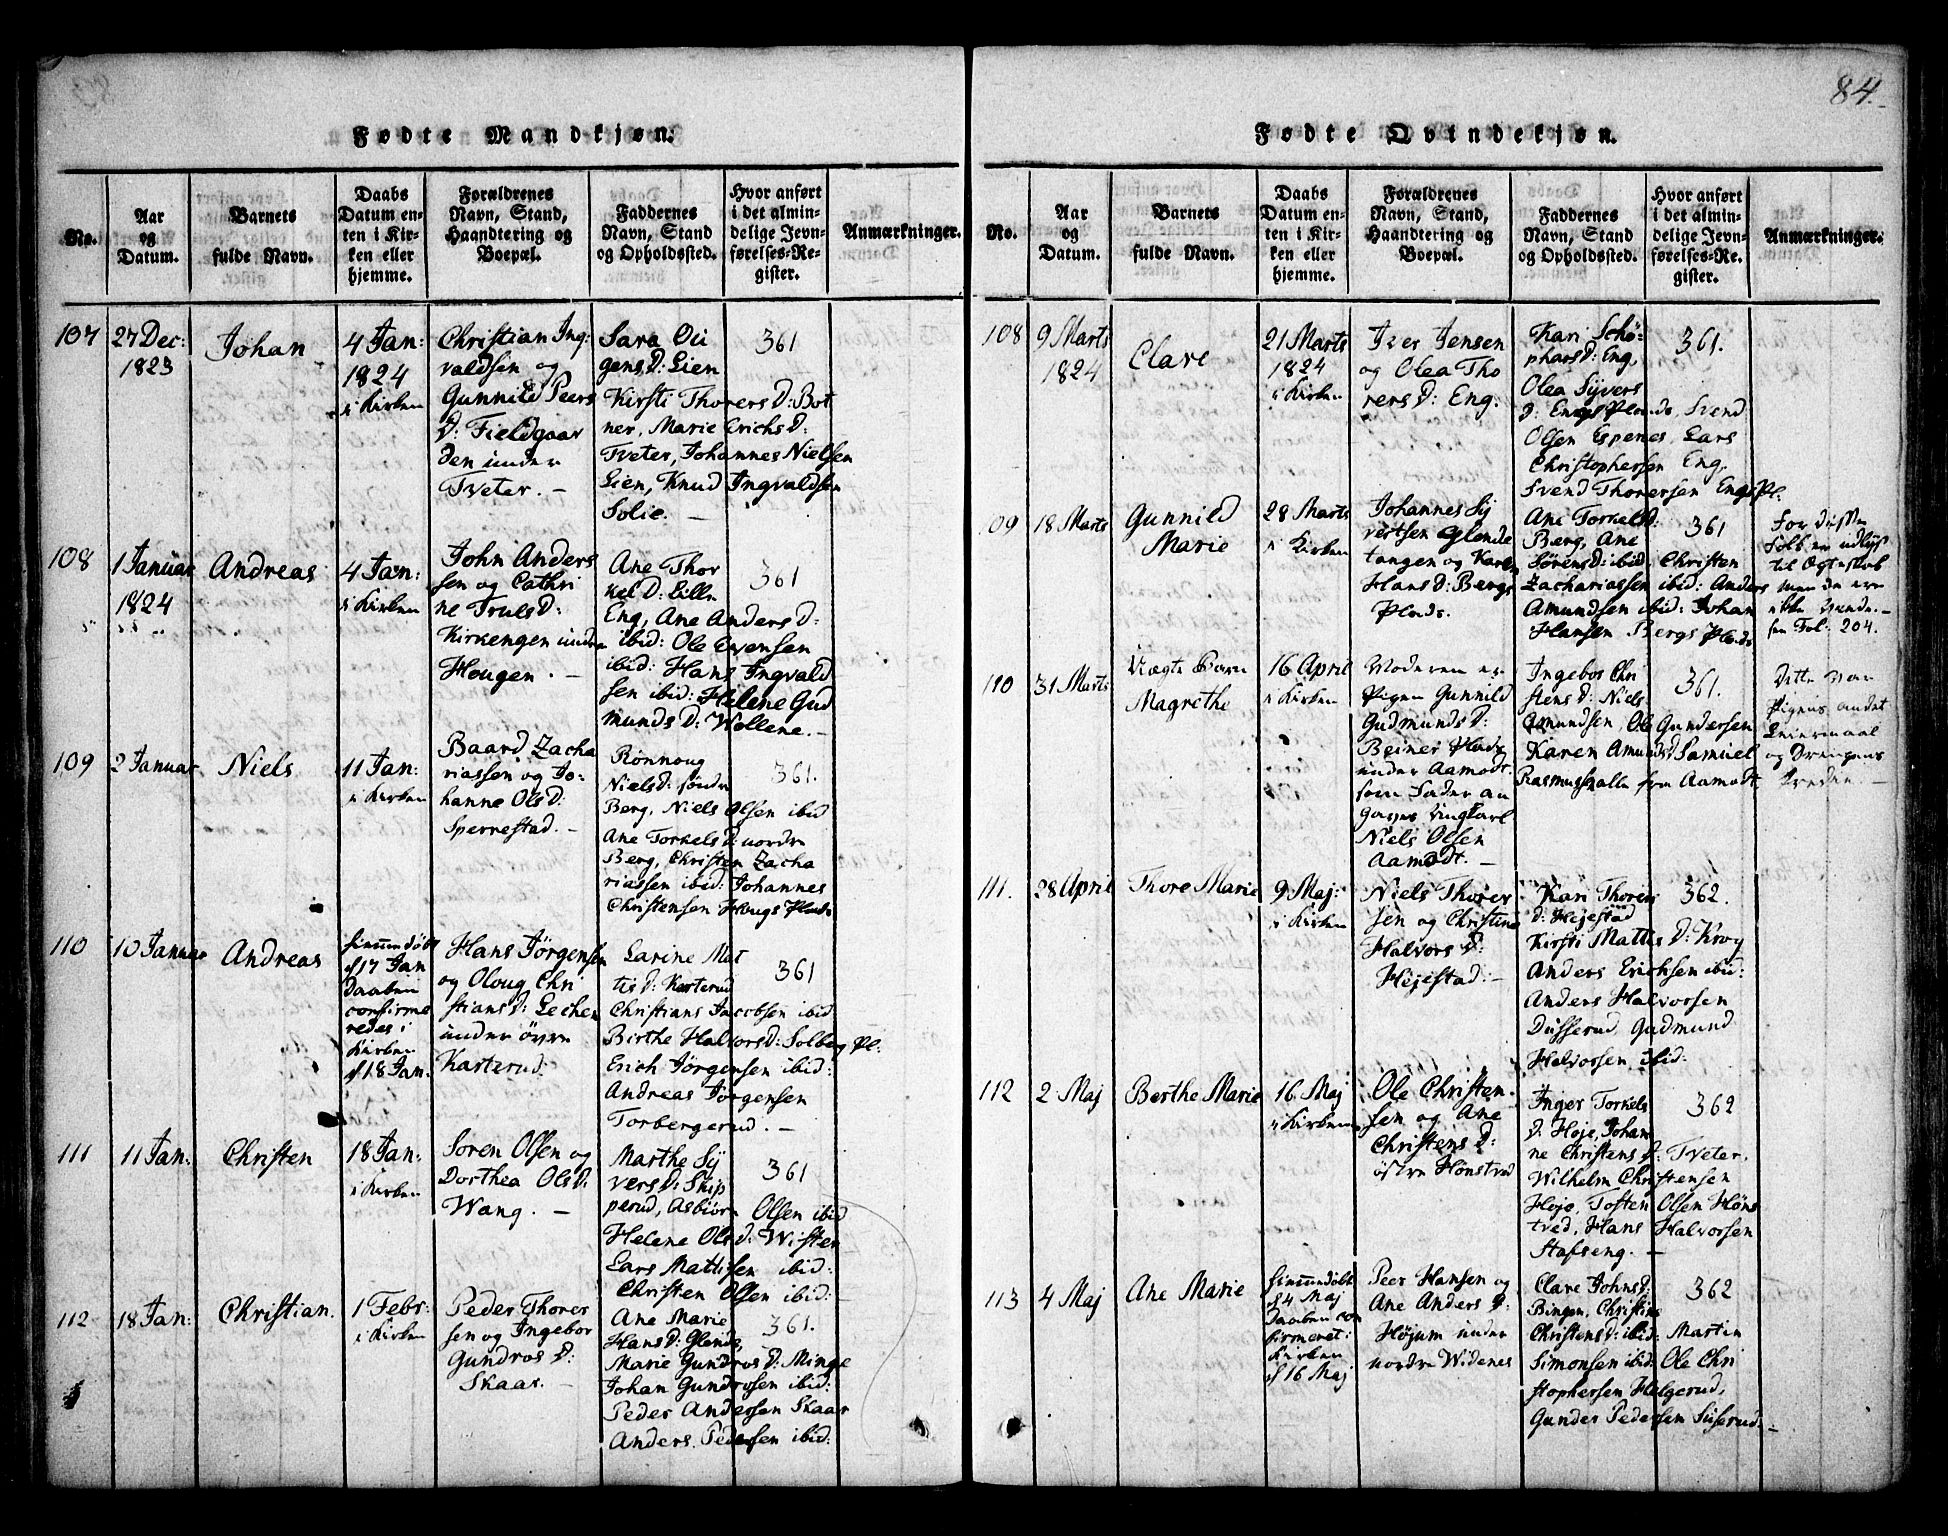 84.
Fødte Mandkjøn.
No.
Aar
og
Datum.
Barnets
fulde Navn.
Daabs
Datum en-
ten i Kir-
ken eller
hjemme.
Forældrenes
Navn, Stand,
Haandtering og
Boepæl.
Faddernes
Navn, Stand
og Opholdssted.
Hvor anført
i det almin-
delige Jevn-
førelses-Re-
gister.
Anmærkninger.
107
27 Dec:
1823
Johan
4 Jan:
1824
i Kirken
Christian Ing-
valdsen og
Gunnild Peers
D: Fieldgaar
den under
Tveter. –
Sara Ou
gens D: Lien
Kirsti Thorers D: Bot
ner, Marie Erichs D:
Tveter, Johannes Nielsen
Lien, Knud Ingvaldsen
Solie. –
361
108
1 Januar
1824
Andreas
4 Jan:
i Kirken
John Anders
sen og Cathri
ne Truls D:
Kirkengen under
Hougen. –
Ane Thor
kel D: Lille
Eng, Ane Anders D:
ibid: Ole Evensen
ibid: Hans Ingvald
sen ibid: Helene Gud
munds D: Wollene. –
361
109
2 Januar
Niels
11 Jan:
i Kirken
Baard Zacha
riassen og Jo-
hanne Ols D:
Sperrestad. –
Rønnoug
Niels D: søndre
Berg, Niels Olsen ibid
Ane Torkels D: nordre
Berg, Christen Zacha
riassen ibid: Johannes
Christensen Hougs Plads
361.
110
10 Januar
Andreas
hiemmedøbt
d 17 Jan
Daaben
confirme
redes i
Kirken
d 18 Jan.
Hans Jørgensen
og Oloug Chri
stians D: Lechen
under øvre
Karterud.
Larine Mat
tis D: Karterud
Christians Jacobsen ibid
Birthe Halvors D: Solberg Pl:
Erich Jørgensen ibid:
Andreas Jørgensen
Torbergerud. –
361
111
11 Jan:
Christen
18 Jan:
i Kirken
Soren Olsen og
Dorthea Ols D:
Wang. –
Marthe Sy
vers D: Skip
perud, Asbiørn Olsen ibid
Helene Ols D: Wister
Lars Mattisen ibid:
Christen Olsen ibid:
361
112
18 Jan:
Christian.
1 Febr:
i Kirken
Peder Thorer
sen og Ingebor
Gundros D:
Skaar. –
Ane Marie
Hans D: Glende,
Marie Gundros D: Minge
Johan Gundrosen ibid:
Peder Andersen Skaar
Anders Pedersen ibid:
361.
Fødte Qvindekjøn.
No.
Aar
og
Datum.
Barnets
fulde Navn.
Daabs
Datum en-
ten i Kir-
ken eller
hjemme.
Forældrenes
Navn, Stand,
Haandtering og
Boepæl.
Faddernes
Navn, Stand
og Opholdssted.
Hvor anført
i det almin-
delige Jevn-
førelses-Re-
gister.
Anmærkninger.
108
9 Marts
1824
Clare
21 Marts
1824
i Kirken
Iver Jensen
og Olea Tho
rers D: Eng.
Kari Schø-
phars D: Eng,
Olea Syvers
D: Engs Plads, Svend
Olsen Espenes, Lars
Christophersen Eng,
Svend Thorersen Engs Pl:
361.
09
18 Marts
Gunnild
Marie
28 Marts
i Kirken
Johannes Sy
vertsen Glende
tangen og Karen
Hans D: Bergs
Plads.
Ane Torkels D:
Berg, Ane
Sørens D: ibid, Christen
Zachariassen ibid: Anders
Amundsen ibid: Johan
Hansen Bergs Plads
361
For disse
Folk er udlyst
til Ægteskab
men de ere
ikke viede. –
Fol: 204.
110
31 Marts
Uægte Barn
Magrethe
16 April
i Kirken
Moderen er
Pigen Gunnild
Gudmunds D:
Beiner Plads
under Aamodt.
som Fader an
gaves Ungkarl
Niels Olsen
Aamodt. –
Ingebor Chri
stens D: Niels
Amundsen, Ole Gundersen
Karen Amunds D: Samuel
Rasmus alle fra Aamodt.
361.
Dette var
Pigens andet
Leiermaal
og Drengens
første. –
111.
28 April
Thore Marie
9 Maj:
i Kirken
Niels Thorer
sen og Christine
Halvors D:
Hejestad: –
Kari Thorers
D: Hejestad
Kirsti Mattis D: Krog
Anders Erichsen ibid:
Anders Halvorsen
Dusserud, Gudmund
Halvorsen ibid:
362.
112
2 Maj
Berthe Marie
16 Maj
i Kirken
Ole Christen-
sen og Ane
Christens D:
østre Hønstved
Inger Torkels
D: Høje, Johan
ne Christens D: Tveter,
Wilhelm Christensen
Høje, Tosten Olsen Høns
tved, Hans Halvorsen
Stafseng. –
362
113
4 Maj
Ane Marie
hiemmedøbt
d 4 Maj
Daaben con
firmeret i
Kirken
d 16 Maj
Peer Hansen og
Ane Anders D:
Højum under
nordre Widenes
Clare Johns D:
Bingen, Christine
Christens D: ibid: Martin
Simonsen ibid: Ole Chri
stophersen Helgerud,
Gunder Pedersen Suserud. –
362